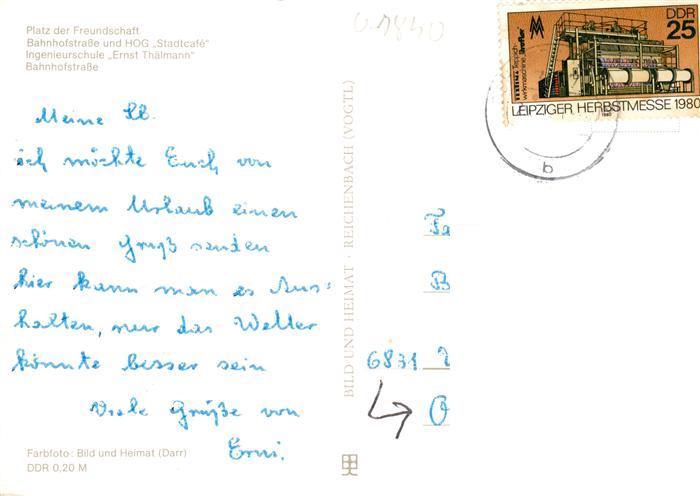 Platz der Freundschaft
Bahnhofstraße und HOG „Stadtcafé"
Ingenieurschule „Ernst Thälmann"
Bahnhofstraße
Meine Lb.
ich möchte Euch von
meinem Urlaub einen
schönen Gruß senden
hier kann man es Aus=
halten, nur das Wetter
könnte besser sein
Viele Grüße von
Erni.
Farbfoto: Bild und Heimat (Darr)
DDR 0,20 M
BILD UND HEIMAT · REICHENBACH (VOGTL)
DDR
25
TEXTIMA Teppich-
wirkmaschine
LEIPZIGER HERBSTMESSE 1980
1980
b
Fa
B
6831
O